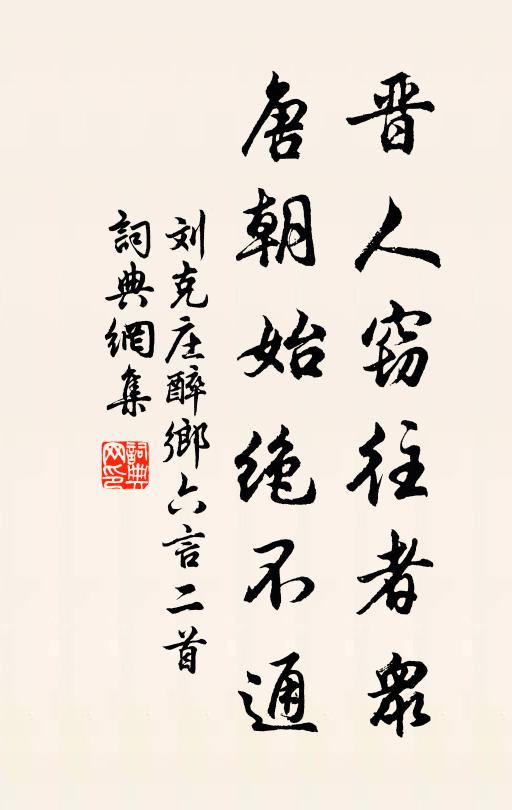 晋人窃往者衆
唐朝始绝不通
刘克庄醉鄉六言二首
詞典網集
詞典网印